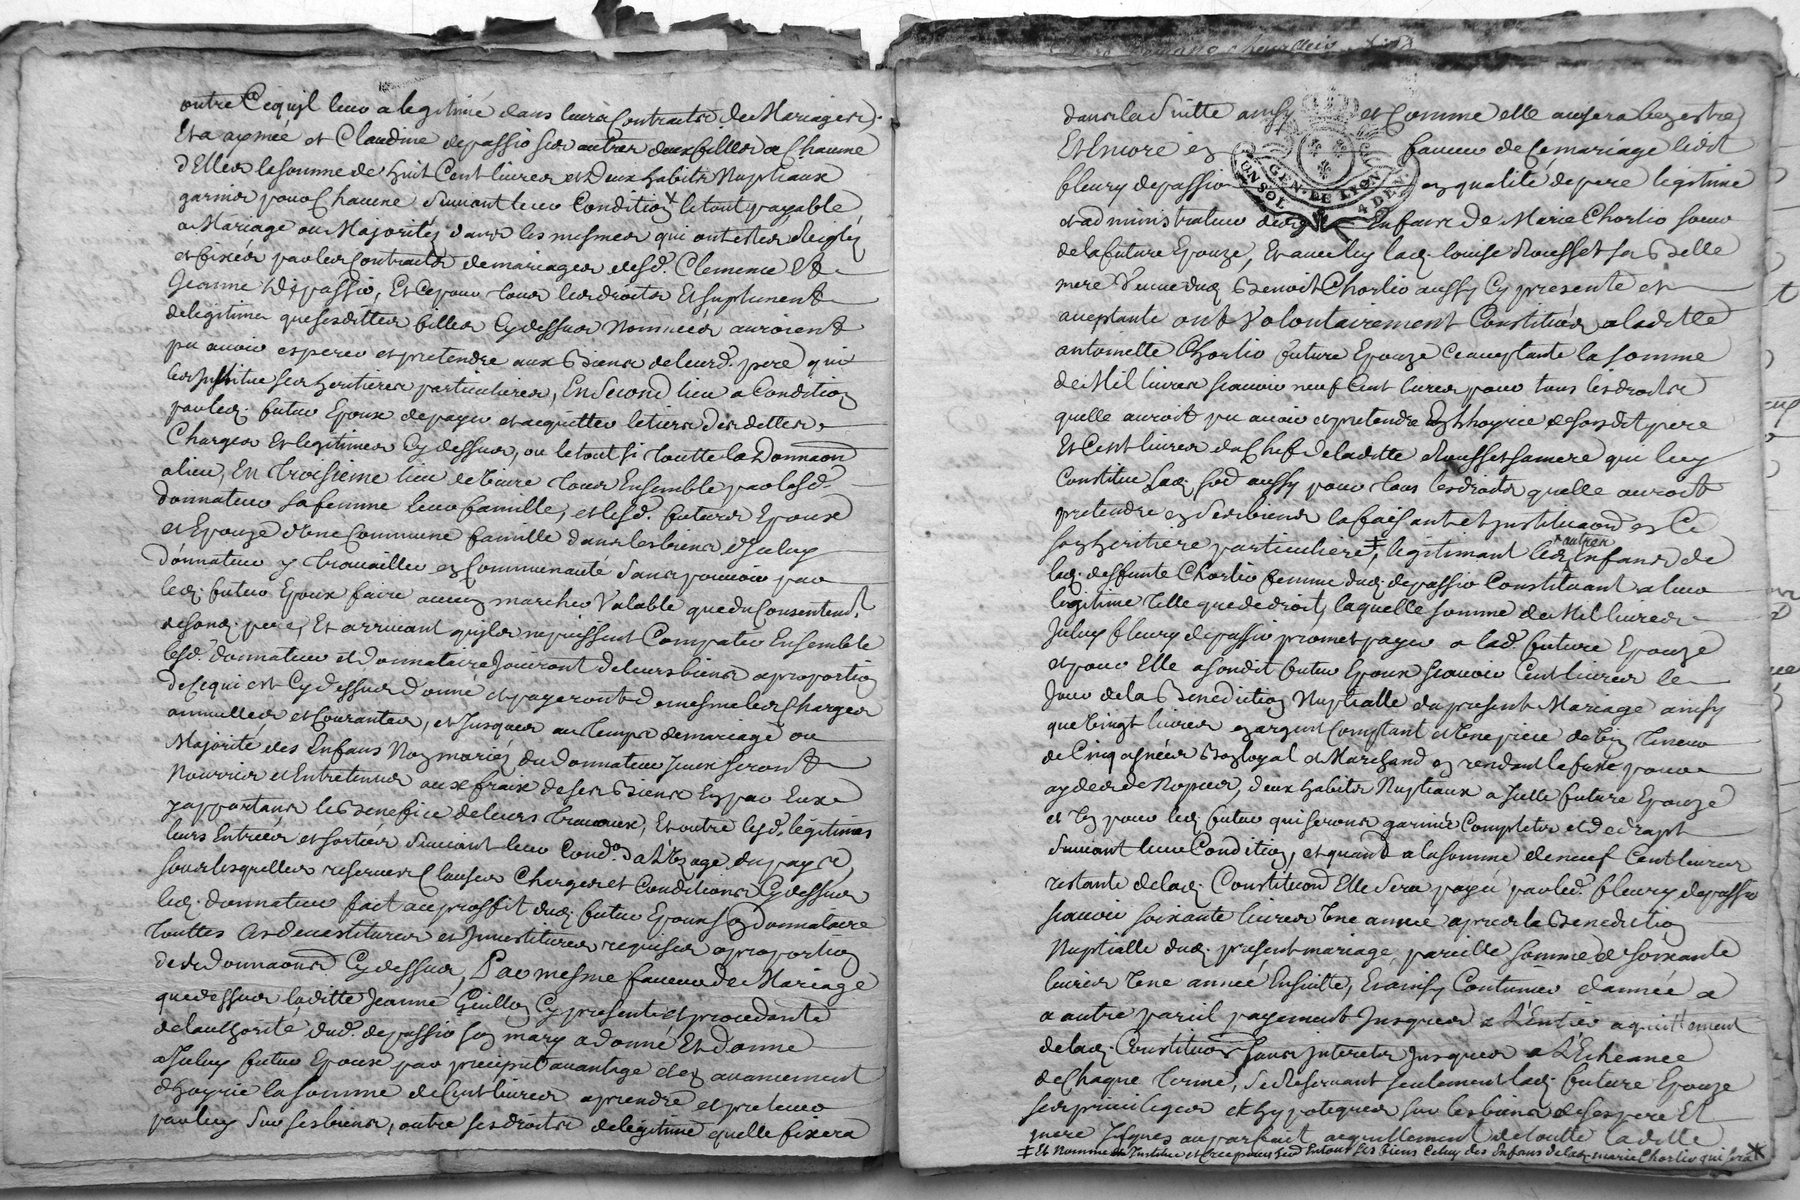 outre Cequil leur a legitimé dans leurs Contracts de Mariages,
Et a aymée et Claudine depassio ses autres deux filles a Chacune
d'Elles la somme de huit Cent livres et Deux habits Nuptiaux
garnis pour Chacune suivant leur Condition le tout payable
a Mariage ou Majorités dans les mesmes qui ont estes Reglés
et fixés par les Contracts de mariages desd. Clemence Et
Jeanne Depassio, Et Ce pour tous les droits Et suplument
de legitime que sesdittes filles Cy dessus Nommées auroient
pu avoir esperer et pretendre aux Biens de leurd. pere qui
les Institue ses heritieres particulieres, En second lieu a Condition
par led. futur Epoux de payer et acquitter le tiers des dettes
Charges Et legitimes Cy dessus, ou le tout si toutte la Donnaon
a lieu, En troisieme lieu de vivre tous Ensemble par lesd.
donnateur sa femme leur famille, et lesd. futurs Epoux
et Epouze d'Une Commune famille dans les biens d'Iceluy
donnateur y travailler en Communauté sans pouvoir par
led. futur Epoux faire aucun marcher Valable que du Consentem.t
de sond. pere, Et arrivant quils ne puissent Compatir Ensemble
lesd. donnateur et donnataire Jouiront de leurs biens a proportion
de Ce qui est Cy dessus donné et payeront de mesme les Charges
annuelles et Courantes, et Jusques au temps de mariage ou
Majorité des Enfans Non mariés du donnateur Iceux seront
Nourris et Entretenus aux fraix de ses Biens En par Eux
rapportant le Benefice de leurs travaux, Et outre lesd. legitimes
leurs Entrées et sorties suivant leur Condon a l'Uzage du pays
sous lesquelles reserves Clauses Charges et Conditions Cy dessus
led. donnateur fait au proffit dud. futur Epoux son donnataire
touttes devestitures et Investitures requises a proportion
desd. Donnaons Cy dessus, Par mesme faveur de Mariage
que dessus laditte Jeanne Guillon Cy presente et procedante
de l'authorité dud. depassio son mary a donné Et donne
a Iceluy futur Epoux par preciput avantage et en avancement
d'hoyrie la somme de Cent livres a prendre et prelever
par luy sur ses biens, outre ses droits de legitime quelle fixera
dans la suitte ainsy et Comme elle avisera bon estre
Et Encore en faveur de Ce mariage ledit
GEN. DE LYON
UN SOL 4 DEN.
fleury depassio en qualité de pere legitime
et administrateur des Enfans de Marie Chorlio soeur
de la future Epouze, Et avec luy lad. louise Rousset sa Belle
mere Veuve dud. Benoit Chorlio aussy Cy presente et
aceptante ont Volontairement Constitués a laditte
antoinette Chorlio future Epouze Ce aceptante la somme
de Mil livres scavoir neuf Cent livres pour tous les droits
quelle auroit pu avoir et pretendre En l'hoyrie de sondit pere
Et Cent livres du Chef de laditte Rousset sa mere qui luy
Constitue aussy pour tous les droits quelle auroit
pretendre en ses biens la faisant et Instituant en Ce
son heritiere particuliere ‡, legitimant les autres Enfans de
lad. deffunte Chorlio femme dud. depassio Constituant a leur
legitime telle que de droit, laquelle somme de Mil livres
Iceluy fleury depassio promet payer a lad. future Epouze
et pour Elle a sondit futur Epoux scavoir Cent livres le
Jour de la Benediction Nuptialle du present Mariage ainsy
que Vingt livres en argent Comptant et Une piece de Vin teneur
de Cinq asnées Bon loyal et Marchand en rendant le fust pour
ayder de Nopces, deux habits Nuptiaux a Icelle future Epouze
et Un pour led. futur qui seront garnis Complets et de drapt
suivant leur Condition, et quand a la somme de neuf Cent livres
restante de lad. Constituon Elle sera payée par led. fleury depassio
scavoir soixante livres Une année apres la Benediction
Nuptialle dud. present mariage, pareille somme de soixante
livres Une année Ensuitte, Et ainsy Continuer d'année a
a autre pareil payement Jusques a l'Entier aquittement
de lad. Constituon sans Interets Jusques a l'Echeance
de Chaque terme, se Reservant seulement lad. future Epouze
ses privileges et hypoteques sur les biens de ses pere Et
mere Jusques au parfait acquittement de toutte laditte
‡ Et Nomme et Institue en tous ses biens Celuy des Enfans de lad. marie Chorlio qui sera